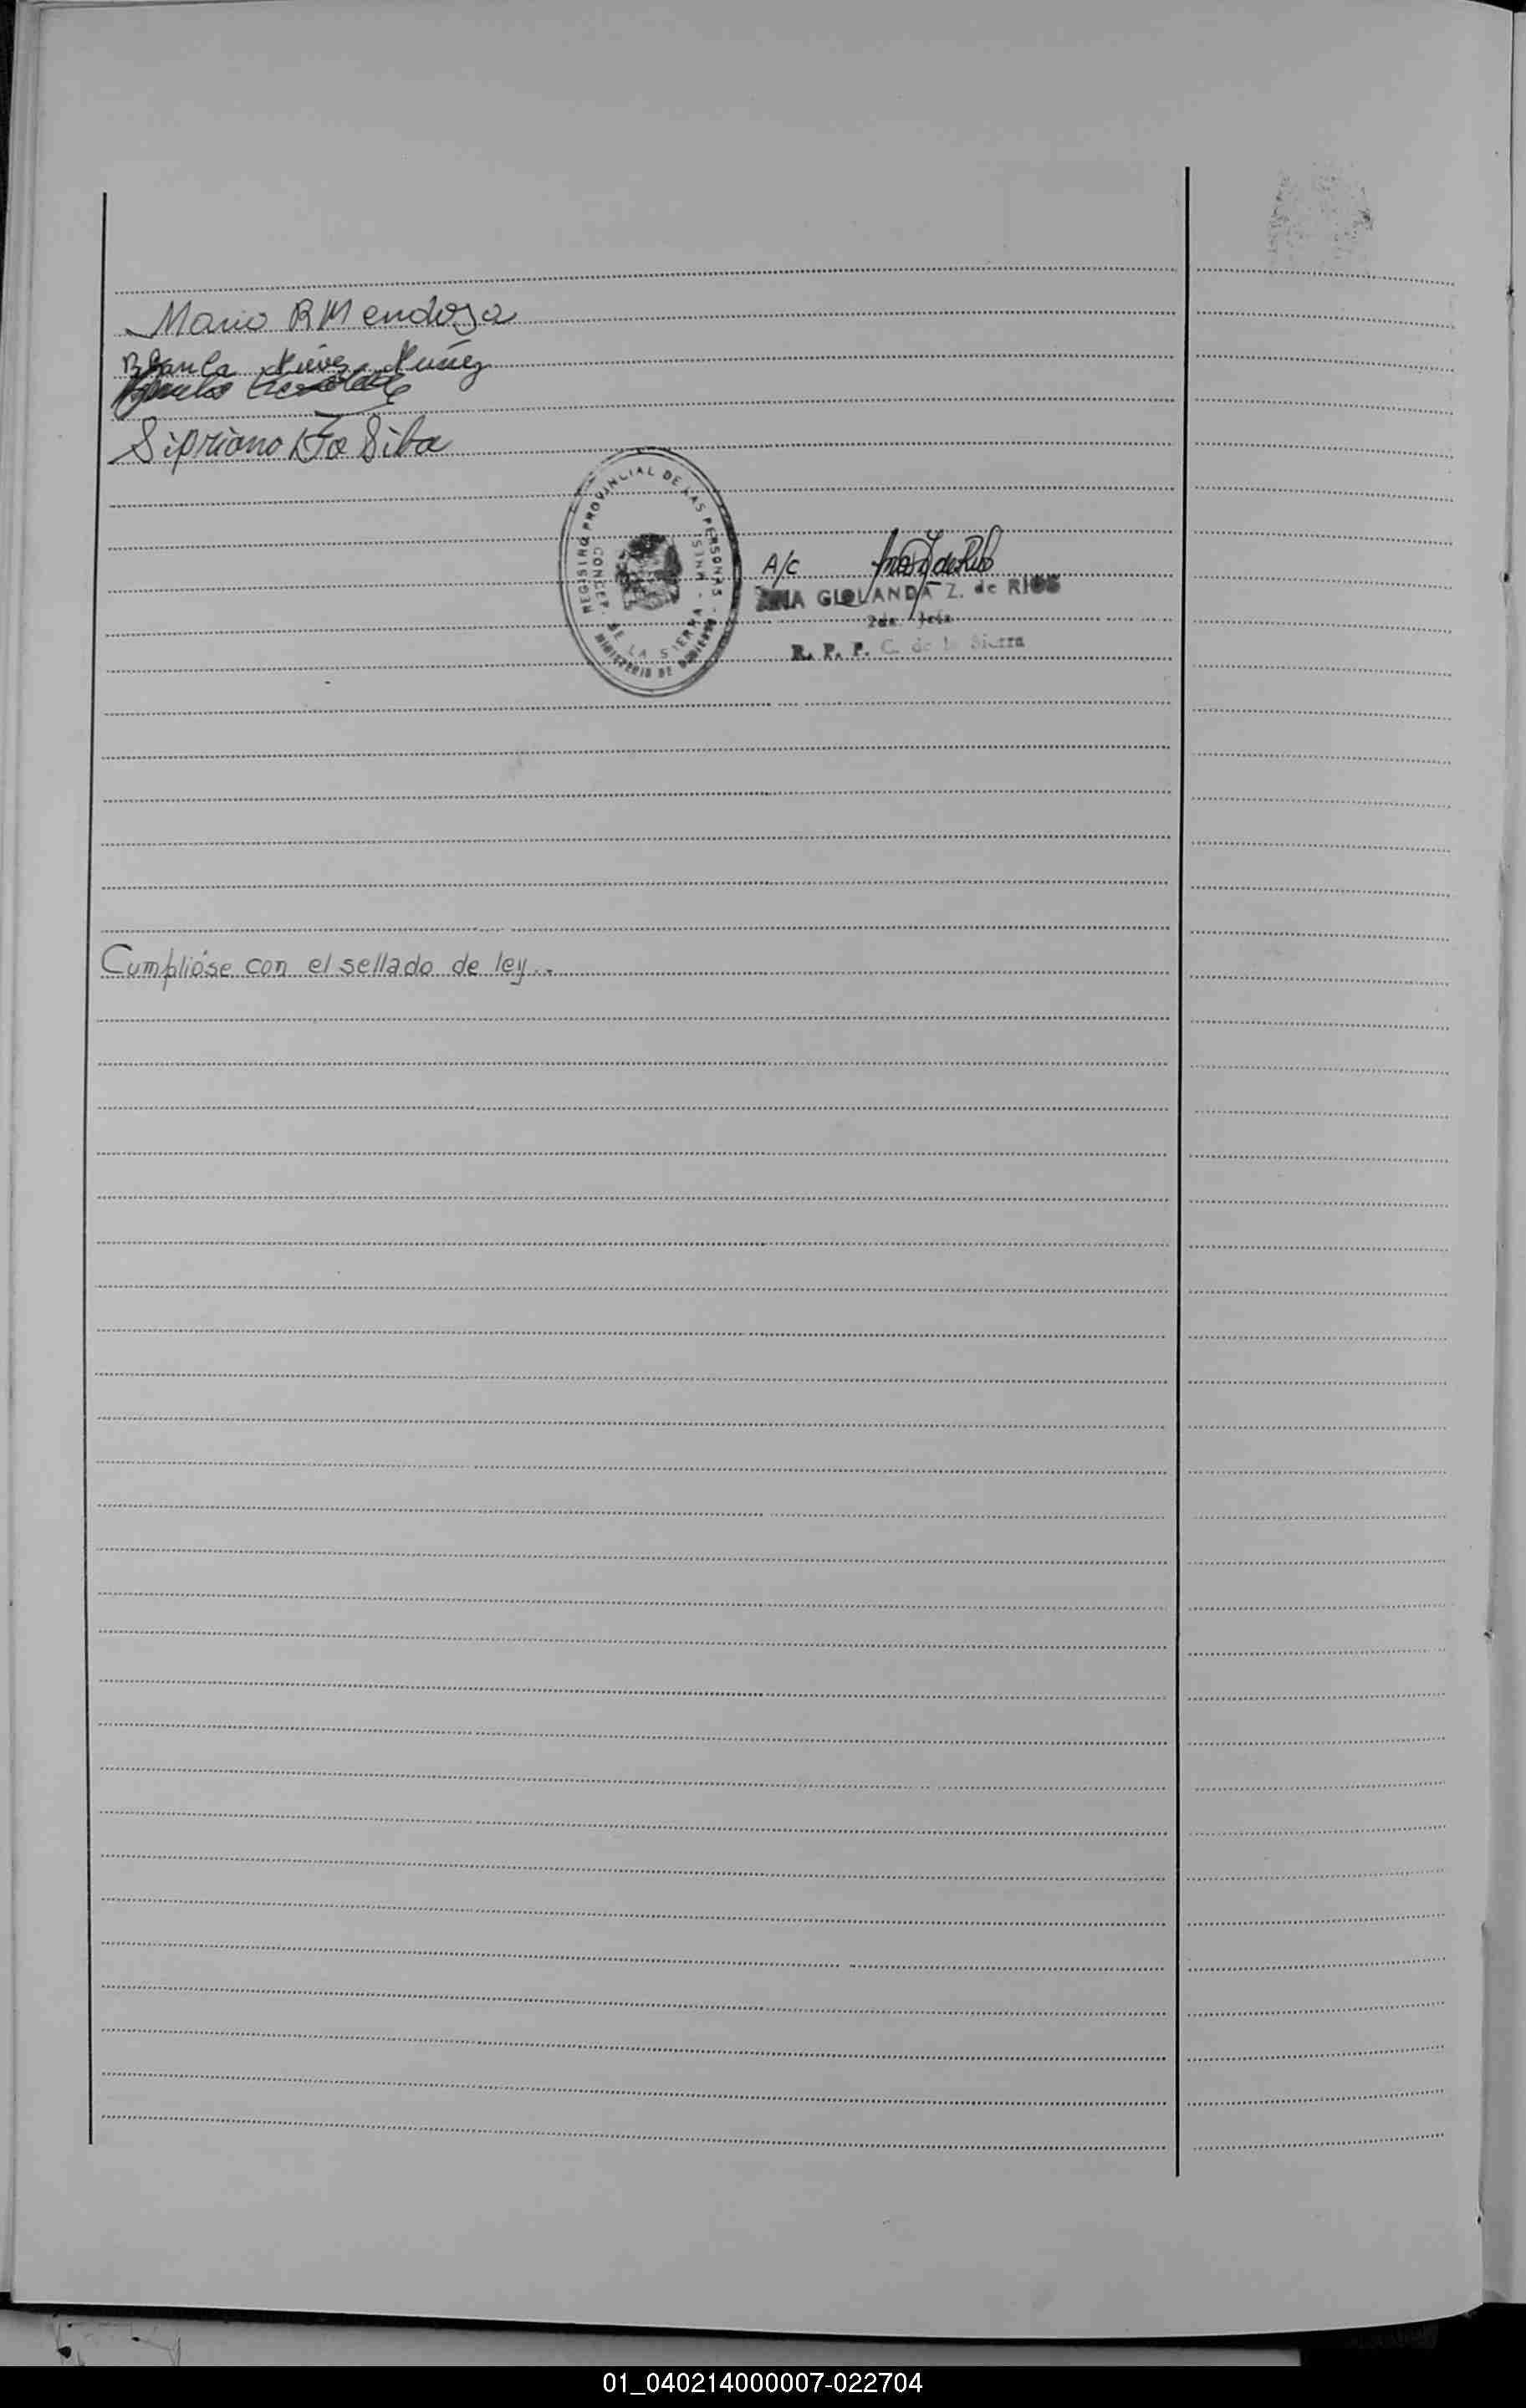 Mario R Mendoza
Blanca Nieve Nuñez
Sipriano Da Silva
REGISTRO PROVINCIAL DE LAS PERSONAS
MINISTERIO DE GOBIERNO
DE LA SIERRA - SINA
A/C
ANA GIOLANDA Z. de RIOS
2da. Jefa
R. P. P. C. de la Sierra
Cumplióse con el sellado de ley..
01_040214000007-022704